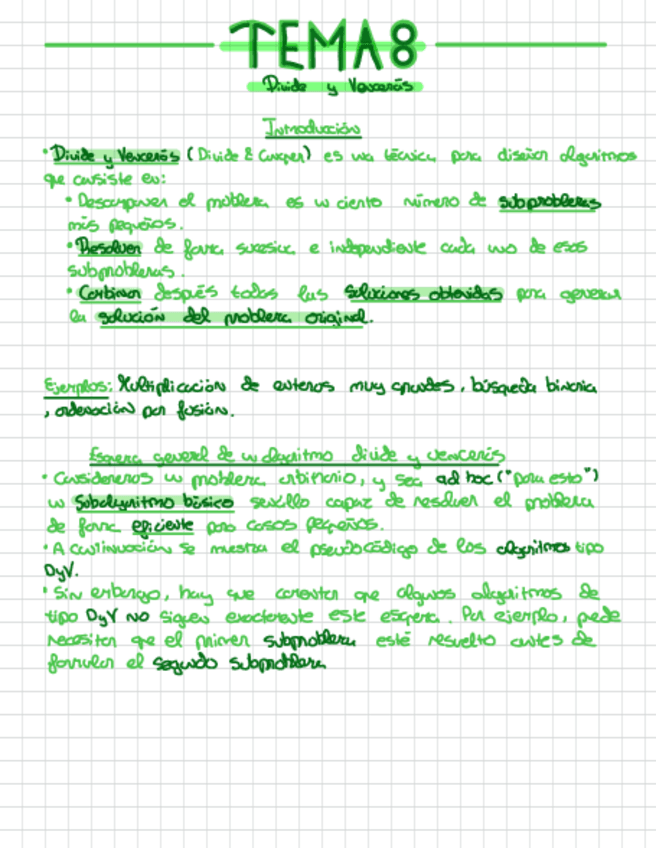 TEMA 8
Divide y Vencerás
Introducción
• Divide y Vencerás (Divide & Conquer) es una técnica para diseñar algoritmos
que consiste en:
• Descomponer el problema es un ciento número de subproblemas
más pequeños.
• Resolver de forma sucesiva e independiente cada uno de esos
subproblemas.
• Combinar después todas las soluciones obtenidas para generar
la solución del problema original.
Ejemplos: Multiplicación de enteros muy grandes, búsqueda binaria
, ordenación por fusión.
Esquema general de un algoritmo divide y vencerás
• Consideremos un problema arbitrario, y sea ad hoc ("para esto")
un Subalgoritmo básico sencillo capaz de resolver el problema
de forma eficiente para casos pequeños.
• A continuación se muestra el pseudocódigo de los algoritmos tipo
DyV.
• Sin embargo, hay que comentar que algunos algoritmos de
tipo DyV NO siguen exactamente este esquema. Por ejemplo, puede
necesitar que el primer subproblema esté resuelto antes de
formular el segundo subproblema